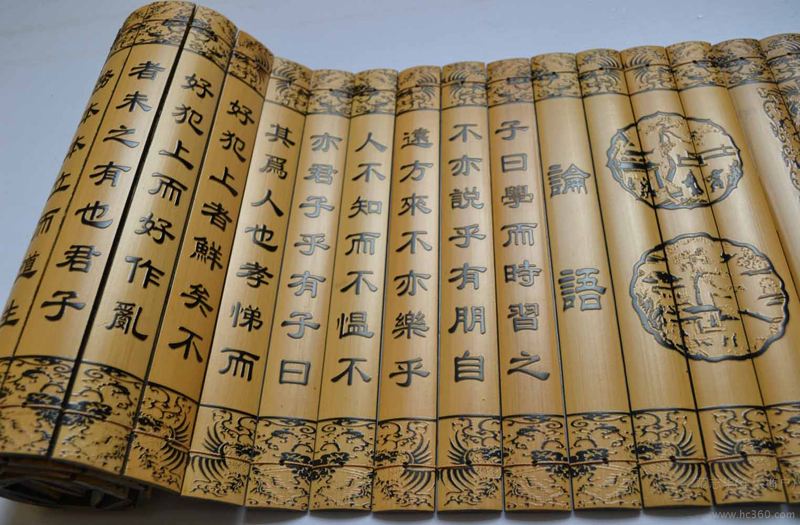 論語
子曰學而時習之
不亦說乎有朋自
遠方來不亦樂乎
人不知而不慍不
亦君子乎有子曰
其爲人也孝悌而
好犯上者鮮矣不
好犯上而好作亂
者未之有也君子
務本本立而道生
www.hc360.com